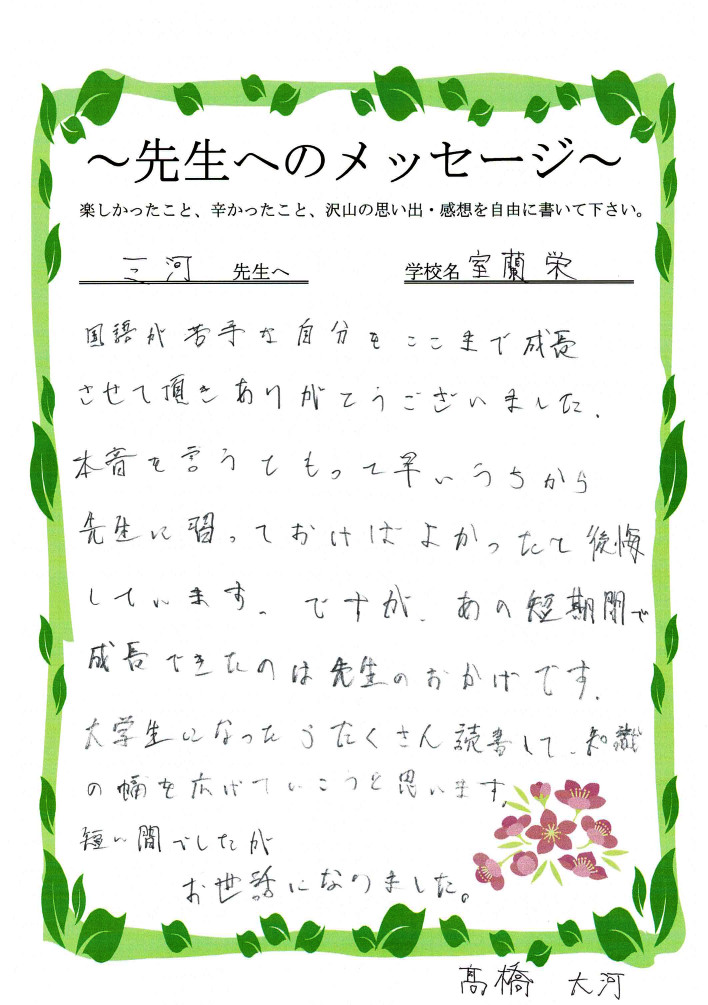 ～先生へのメッセージ～
楽しかったこと、辛かったこと、沢山の思い出・感想を自由に書いて下さい。
三河 先生へ 学校名 室蘭栄
国語が苦手な自分をここまで成長
させて頂きありがとうございました.
本音を言うともって早いうちから
先生に習っておけばよかったて後悔
しています。ですが、あの短期間で
成長できたのは先生のおかげです.
大学生になったらたくさん読書して、知識
の幅を広げていこうと思います。
短い間でしたが
お世話になりました。
髙橋 大河